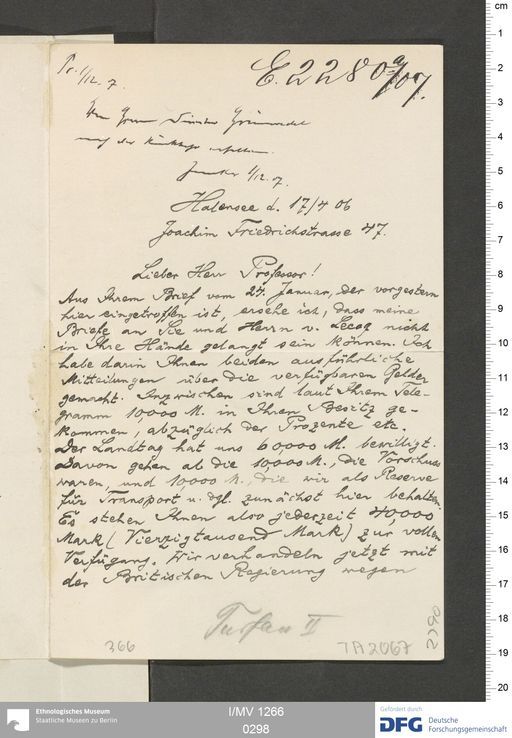 Pr. 1/12. 7.
E. 2280a/07.
Herrn Direktor Grünwedel
nach der Rückkehr
1/12. 07.
Halensee d. 17/4 06
Joachim Friedrichstrasse 47.
Lieber Herr Professor!
Aus Ihrem Brief vom 24. Januar, der vorgestern
hier eingetroffen ist, ersehe ich, dass meine
Briefe an Sie und Herrn v. Lecoq nicht
in Ihre Hände gelangt sein können. Ich
habe darin Ihnen beiden ausführliche
Mitteilungen über die verfügbaren Gelder
gemacht. Inzwischen sind laut Ihrem Tele-
gramm 10,000 M. in Ihren Besitz ge-
kommen, abzüglich der Prozente etc.
Der Landtag hat uns 60,000 M. bewilligt.
Davon gehen ab die 10,000 M., die Vorschuss
waren, und 10,000 M., die wir als Reserve
für Transport u. dgl. zunächst hier behalten.
Es stehen Ihnen also jederzeit 40000
Mark (Vierzigtausend Mark) zur vollen
Verfügung. Wir verhandeln jetzt mit
der Britischen Regierung wegen
Turfan II
366
TA 2067
2290
cm
1
2
3
4
5
6
7
8
9
10
11
12
13
14
15
16
17
18
19
20
Ethnologisches Museum
Staatliche Museen zu Berlin
I/MV 1266
0298
Gefördert durch
DFG Deutsche
Forschungsgemeinschaft